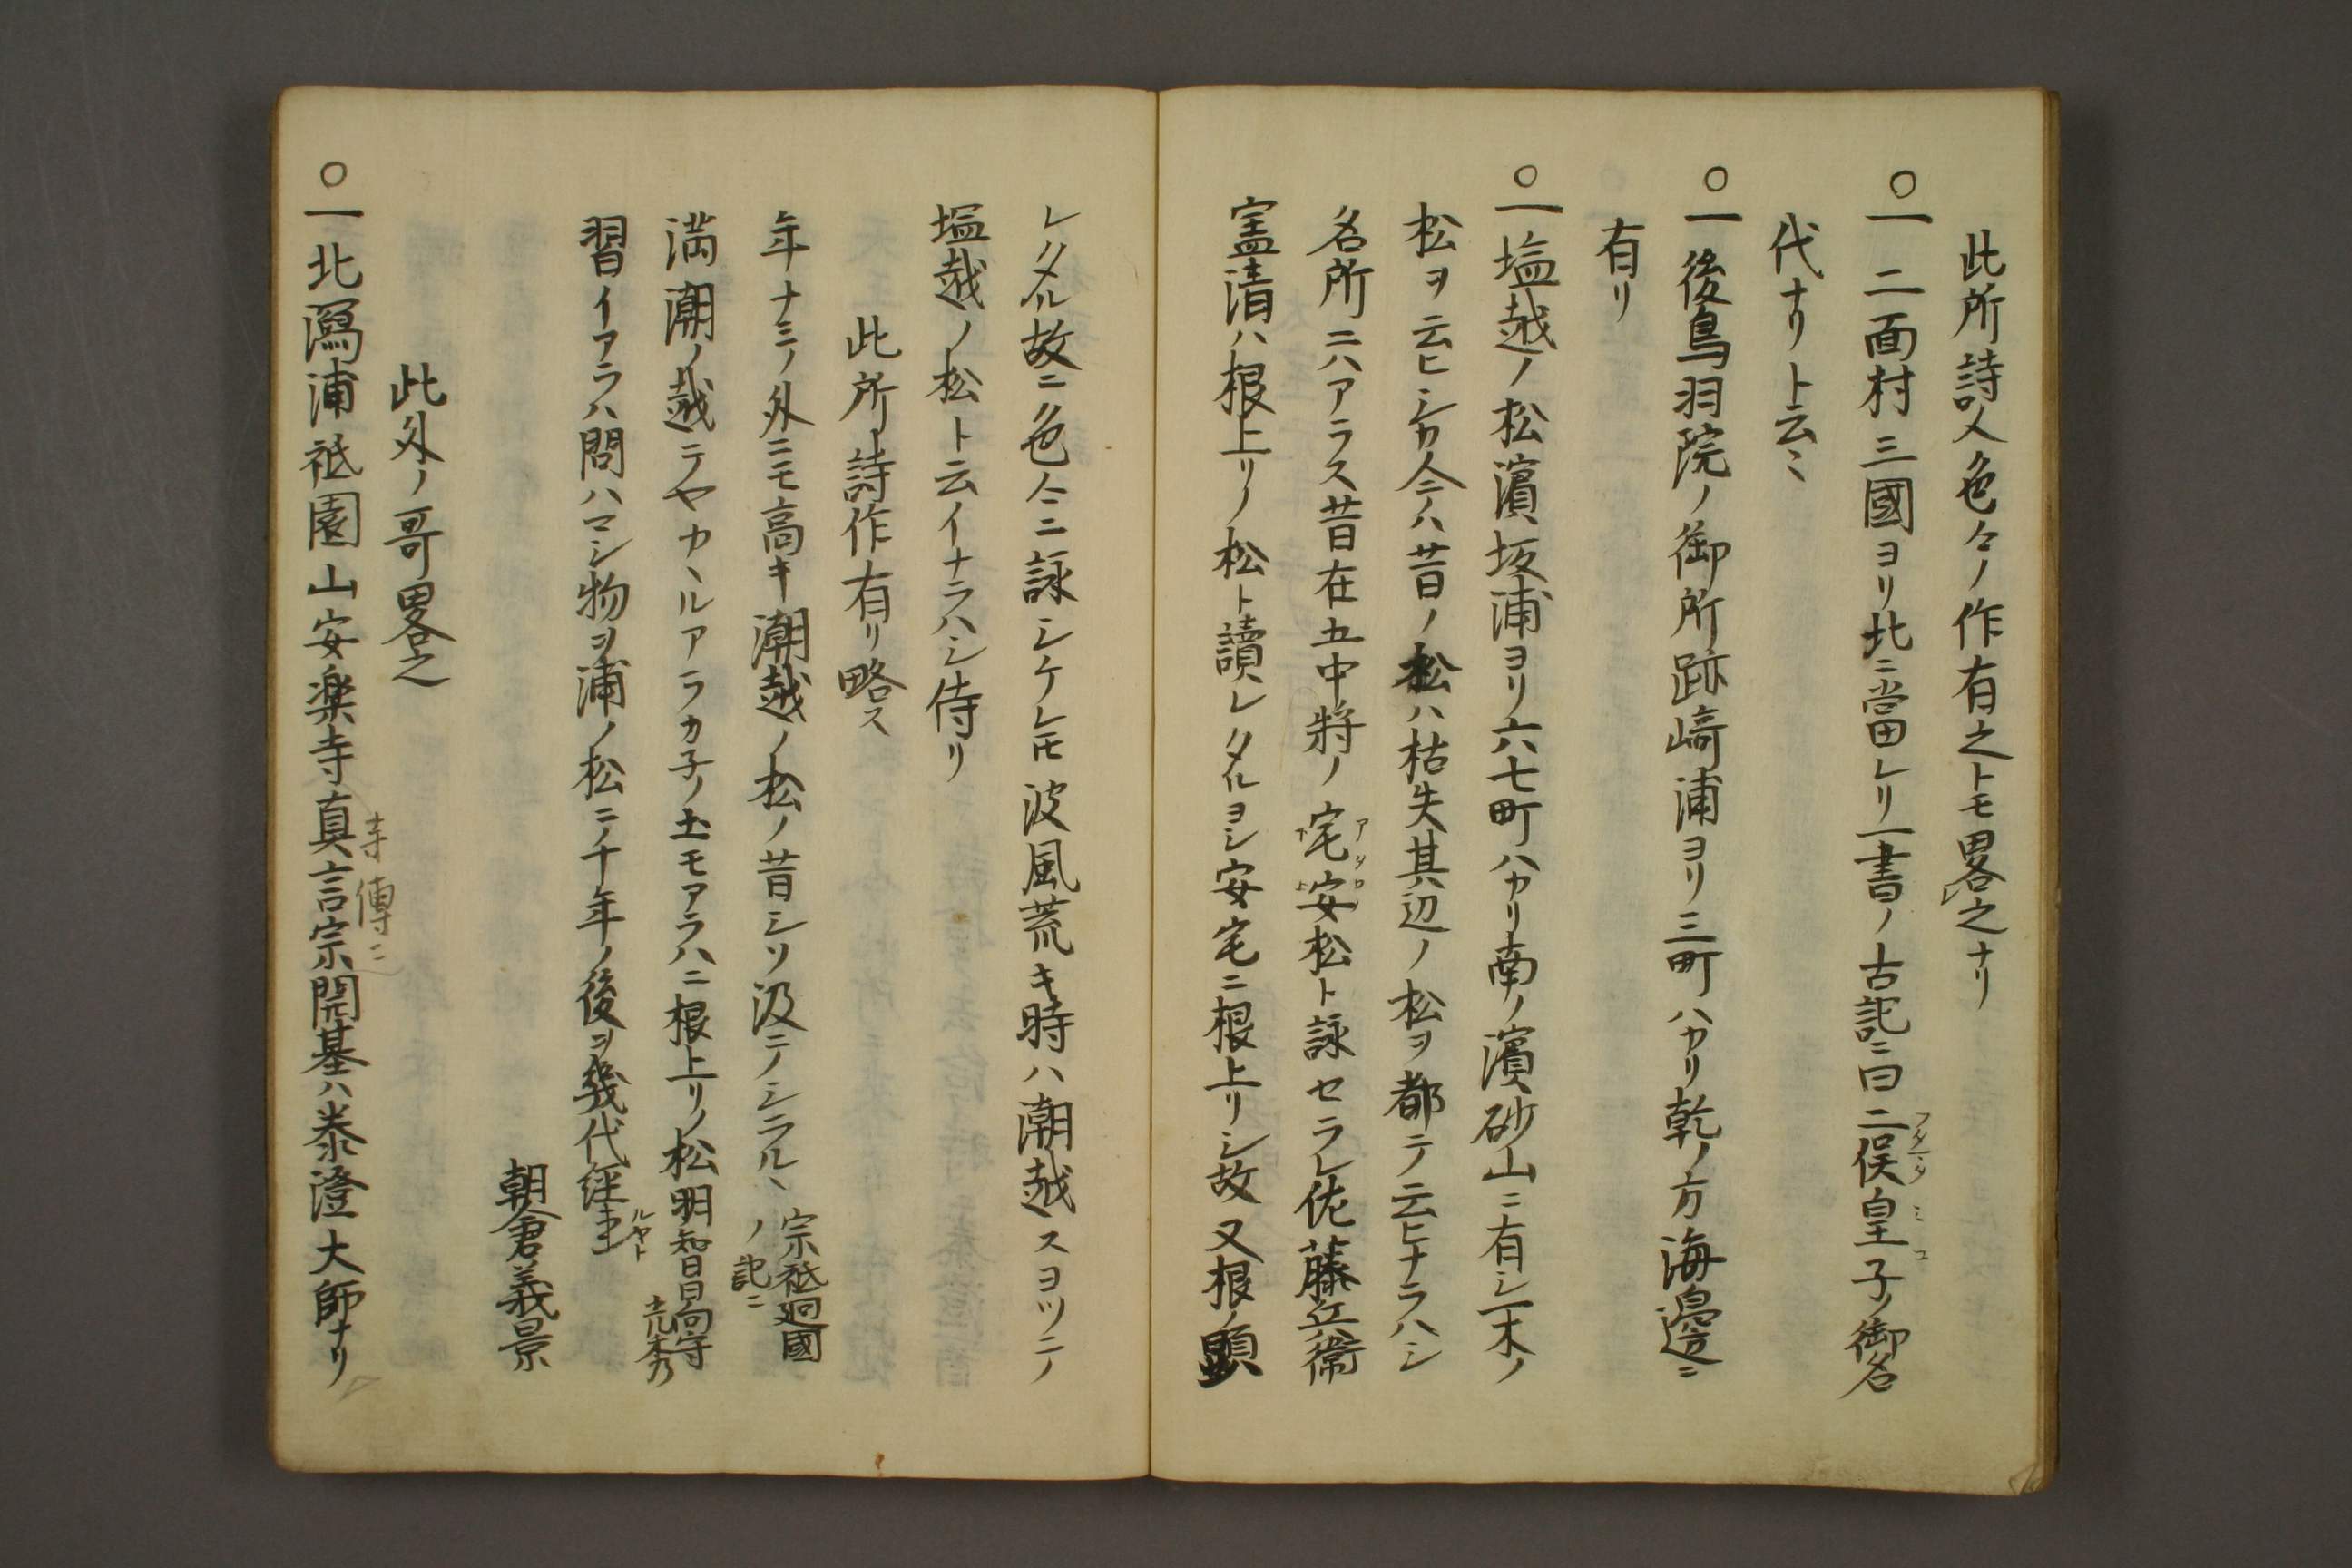 此所詩人色々ノ作有之トモ畧之ナリ
〇一 二面村三國ヨリ北ニ當レリ一書ノ古記ニ曰二俣皇子ノ御名
フタマタミコ
代ナリト云ミ
〇一後鳥羽院ノ御所跡﨑浦ヨリ三町ハカリ乾ノ方海邉ニ
有リ
〇一塩越ノ松濵坂浦ヨリ六七町ハカリ南ノ濵砂山ニ有シ一木ノ
松ヲ云ヒシカ今ハ昔ノ松ハ枯失其辺ノ松ヲ都テ云ヒナラハシ
名所ニハアラス昔在五中将ノ宅安松ト詠セラレ佐藤兵衛
アタロ
下上
憲清ハ根上リノ松ト讀レタルヨシ安宅ニ根上リシ故又根ノ顕
レタル故ニ色々ニ詠シケレ𪜈波風荒キ時ハ潮越スヨツテノ
塩越ノ松ト云イナラハシ侍リ
此所詩作有リ略ス
年ナミノ外ニモ高キ潮越ノ松ノ昔シソ汲テシラルヽ
宗祗廻國
ノ記ニ
満潮ノ越テヤカヽルアラカ子ノ土モアラハニ根上リノ松
明智日向守
光秀
習イアラハ問ハマシ物ヲ浦ノ松ニノ十年ノ後ヲ幾代経
ルヤト
朝倉義景
此外ノ哥畧之
〇一北潟浦祗園山安楽寺真言宗開基ハ泰澄大師ナリ
寺傳ニ